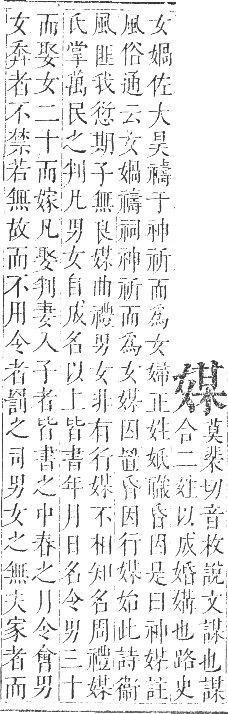 媒
莫裴切音枚說文謀也謀
合二姓以成婚媾也路史
女媧佐大昊禱于神祈而為女婦正姓職昏因是曰神媒註
風俗通云女媧禱祠神祈而為女媒因置昏因行媒始此詩衞
風匪我愆期子無良媒曲禮男女非有行媒不相知名周禮媒
氏掌萬民之判凡男女自成名以上皆書年月日名令男三十
而娶女二十而嫁凡娶判妻入子者皆書之中春之月令會男
女奔者不禁若無故而不用令者罰之司男女之無夫家者而